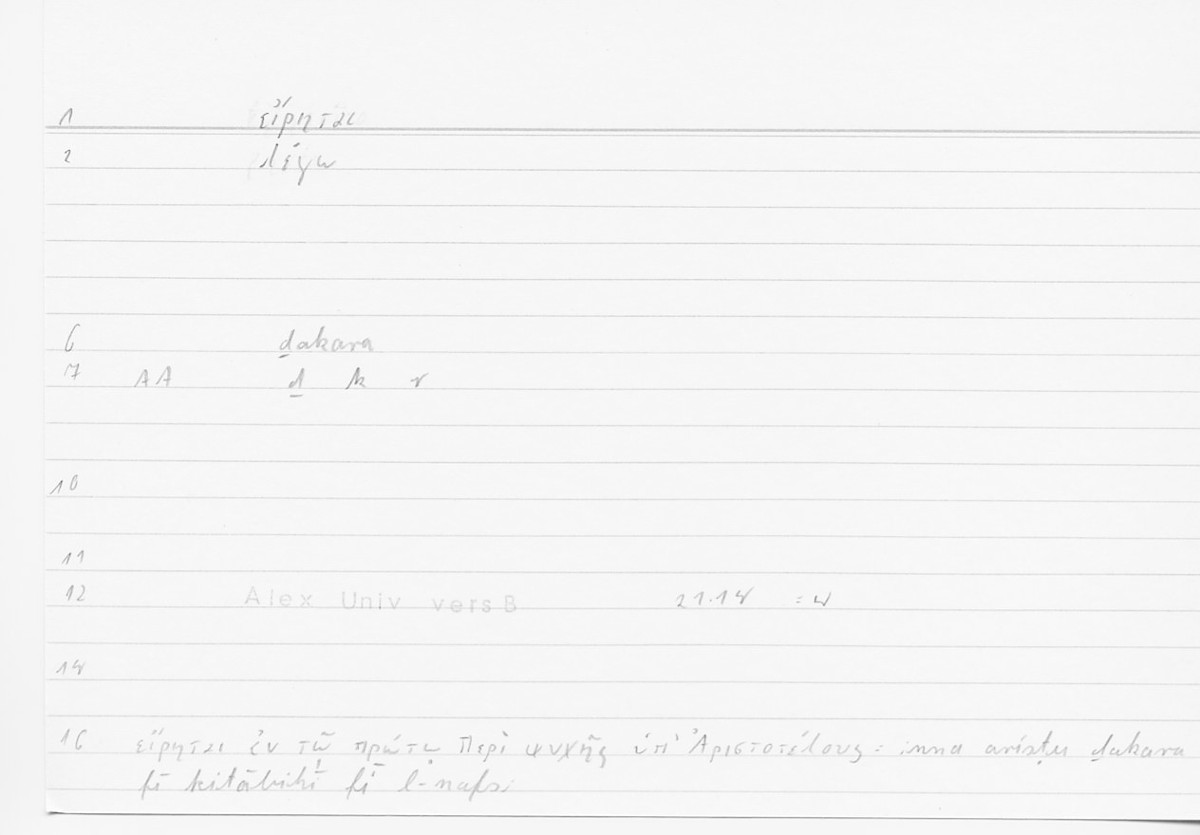 1 εἴρηται
2 λέγω
6 ḏakara
7 AA ḏ k r
10
11
12 Alex Univ vers B 21.14 =
14
16 εἴρηται ἐν τῷ πρώτῳ Περὶ ψυχῆς ὑπ' Ἀριστοτέλους = inna arisṭu ḏakara
fī kitābihī fī l-nafsi